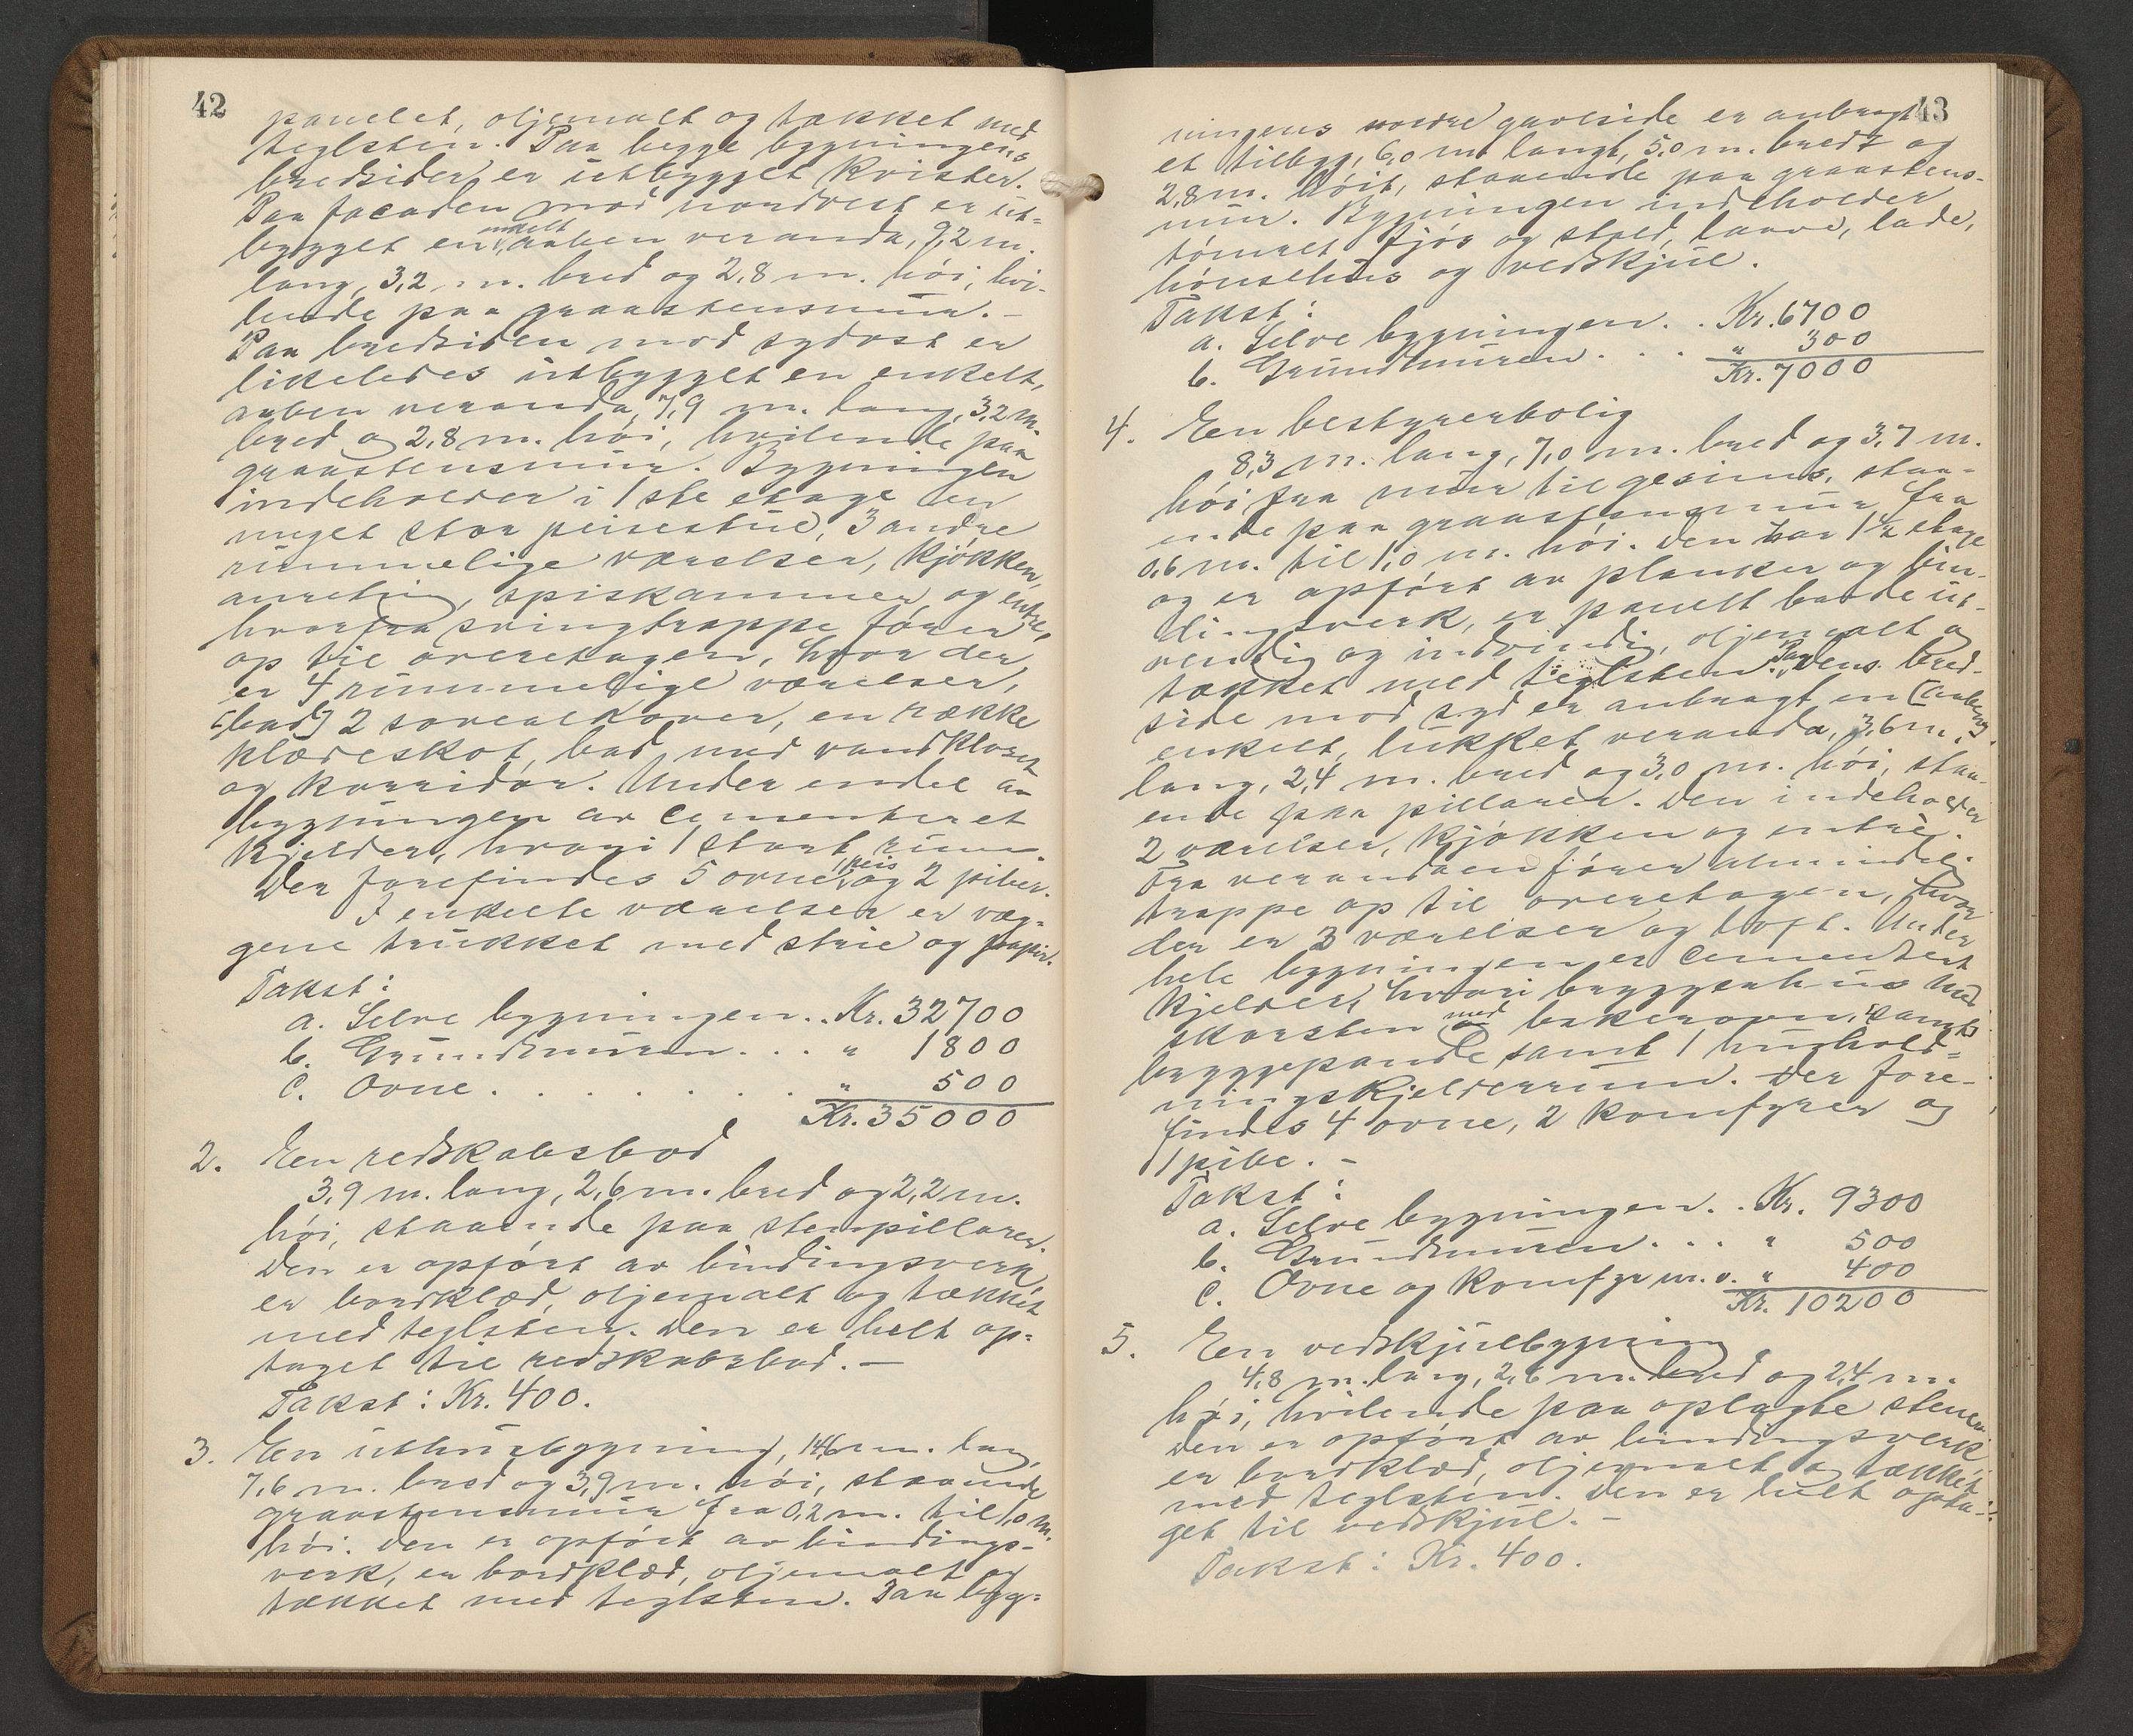 42
panelet, oljemalt og tækket med
teglsten. Paa begge bygningens
bredsider er utbygget kvister.
Paa facaden mod nordvest er ut-
bygget en enkelt, aaben veranda, 9,2 m.
lang, 3,2 m. bred og 2,8 m. høi, hvi-
lende paa graastensmur. –
Paa bredsiden mod sydost er
likeledes utbygget en enkelt,
aaben veranda, 7,9 m. lang, 3,2 m.
bred og 2,8 m. høi, hvilende paa
graastensmur. Bygningen
indeholder i 1ste etage en
meget stor peisestue, 3 andre
rummelige værelser, kjøkken,
anretning, spiskammer og entre,
hvorfra svingtrappe fører
op til overetagen, hvor der
er 4 rummelige værelser,
[bad] 2 sovealkover, en række
klædeskot, bad med vandkloset
og korridor. Under endel av
bygningen er cementeret
kjelder, hvori 1 stort rum.
Der forefindes 5 ovne, 1 peis og 2 piber.
I enkelte værelser er væg-
gene trukket med strie og papir.
Takst:
a. Selve bygningen . . Kr. 32700
b. Grundmuren . . . " 1800
c. Ovne . . . . . . " 500
Kr. 35000
2. En redskabsbod
3,9 m. lang, 2,6 m. bred og 2,2 m.
høi, staaende paa stenpillarer.
Den er opført av bindingsverk,
er bordklæd, oljemalt og tækket
med teglsten. Den er helt op-
taget til redskabsbod. –
Takst: Kr. 400.
3. En uthusbygning, 14,6 m. lang
7,6 m. bred og 3,9 m. høi, staaende
graastensmur fra 0,2 m. til 1,0 m.
høi. Den er opført av bindings-
verk, er bordklæd, oljemalt og
tækket med teglsten. Paa byg-
43
ningens nordre gavlside er anbragt
et tilbygg, 6,0 m. langt, 5,0 m. bredt og
2,8 m. høit, staaende paa graastens-
mur. Bygningen indeholder
tømret fjøs og stald, laave, lade,
hønsehus og vedskjul.
Takst:
a. Selve bygningen . . Kr. 6700
b. Grundmuren . . . " 300
Kr. 7000
4. En bestyrerbolig
8,3 m. lang, 7,0 m. bred og 3,7 m.
høi fra mur til gesims, staa-
ende paa graastensmur fra
0,6 m. til 1,0 m. høi. Den har 1 1/2 etage
og er opført av planker og bin-
dingsverk, er panelt baade ut-
vendig og indvendig, oljemalt og
tækket med teglsten. Paa dens bred-
side mod syd er anbragt en [aaben]
enkelt, lukket veranda, 3,6 m.
lang, 2,4 m. bred og 3,0 m. høi, staa-
ende paa pillarer. Den indeholder
2 værelser, kjøkken og entre.
Fra verandaen fører almindelig
trappe op til overetagen, hvor
der er 3 værelser og loft. Under
hele bygningen er cementert
kjelder, hvori bryggerhus med
skorsten med bakerovn, [samt]
bryggepande samt 1 hushold-
ningskjelderrum. Der fore-
findes 4 ovne, 2 komfyrer og
1 pibe. –
Takst:
a. Selve bygningen . . Kr. 9300
b. Grundmuren . . . " 500
c. Ovne og komfyr m.v. " 400
Kr. 10200
5. En vedskjulbygning
4,8 m. lang, 2,6 m. bred og 2,4 m.
høi, hvilende paa oplagte stener.
Den er opført av bindingsverk
er bordklæd, oljemalt og tækket
med teglsten. Den er helt opta-
get til vedskjul. –
Takst: Kr. 400.